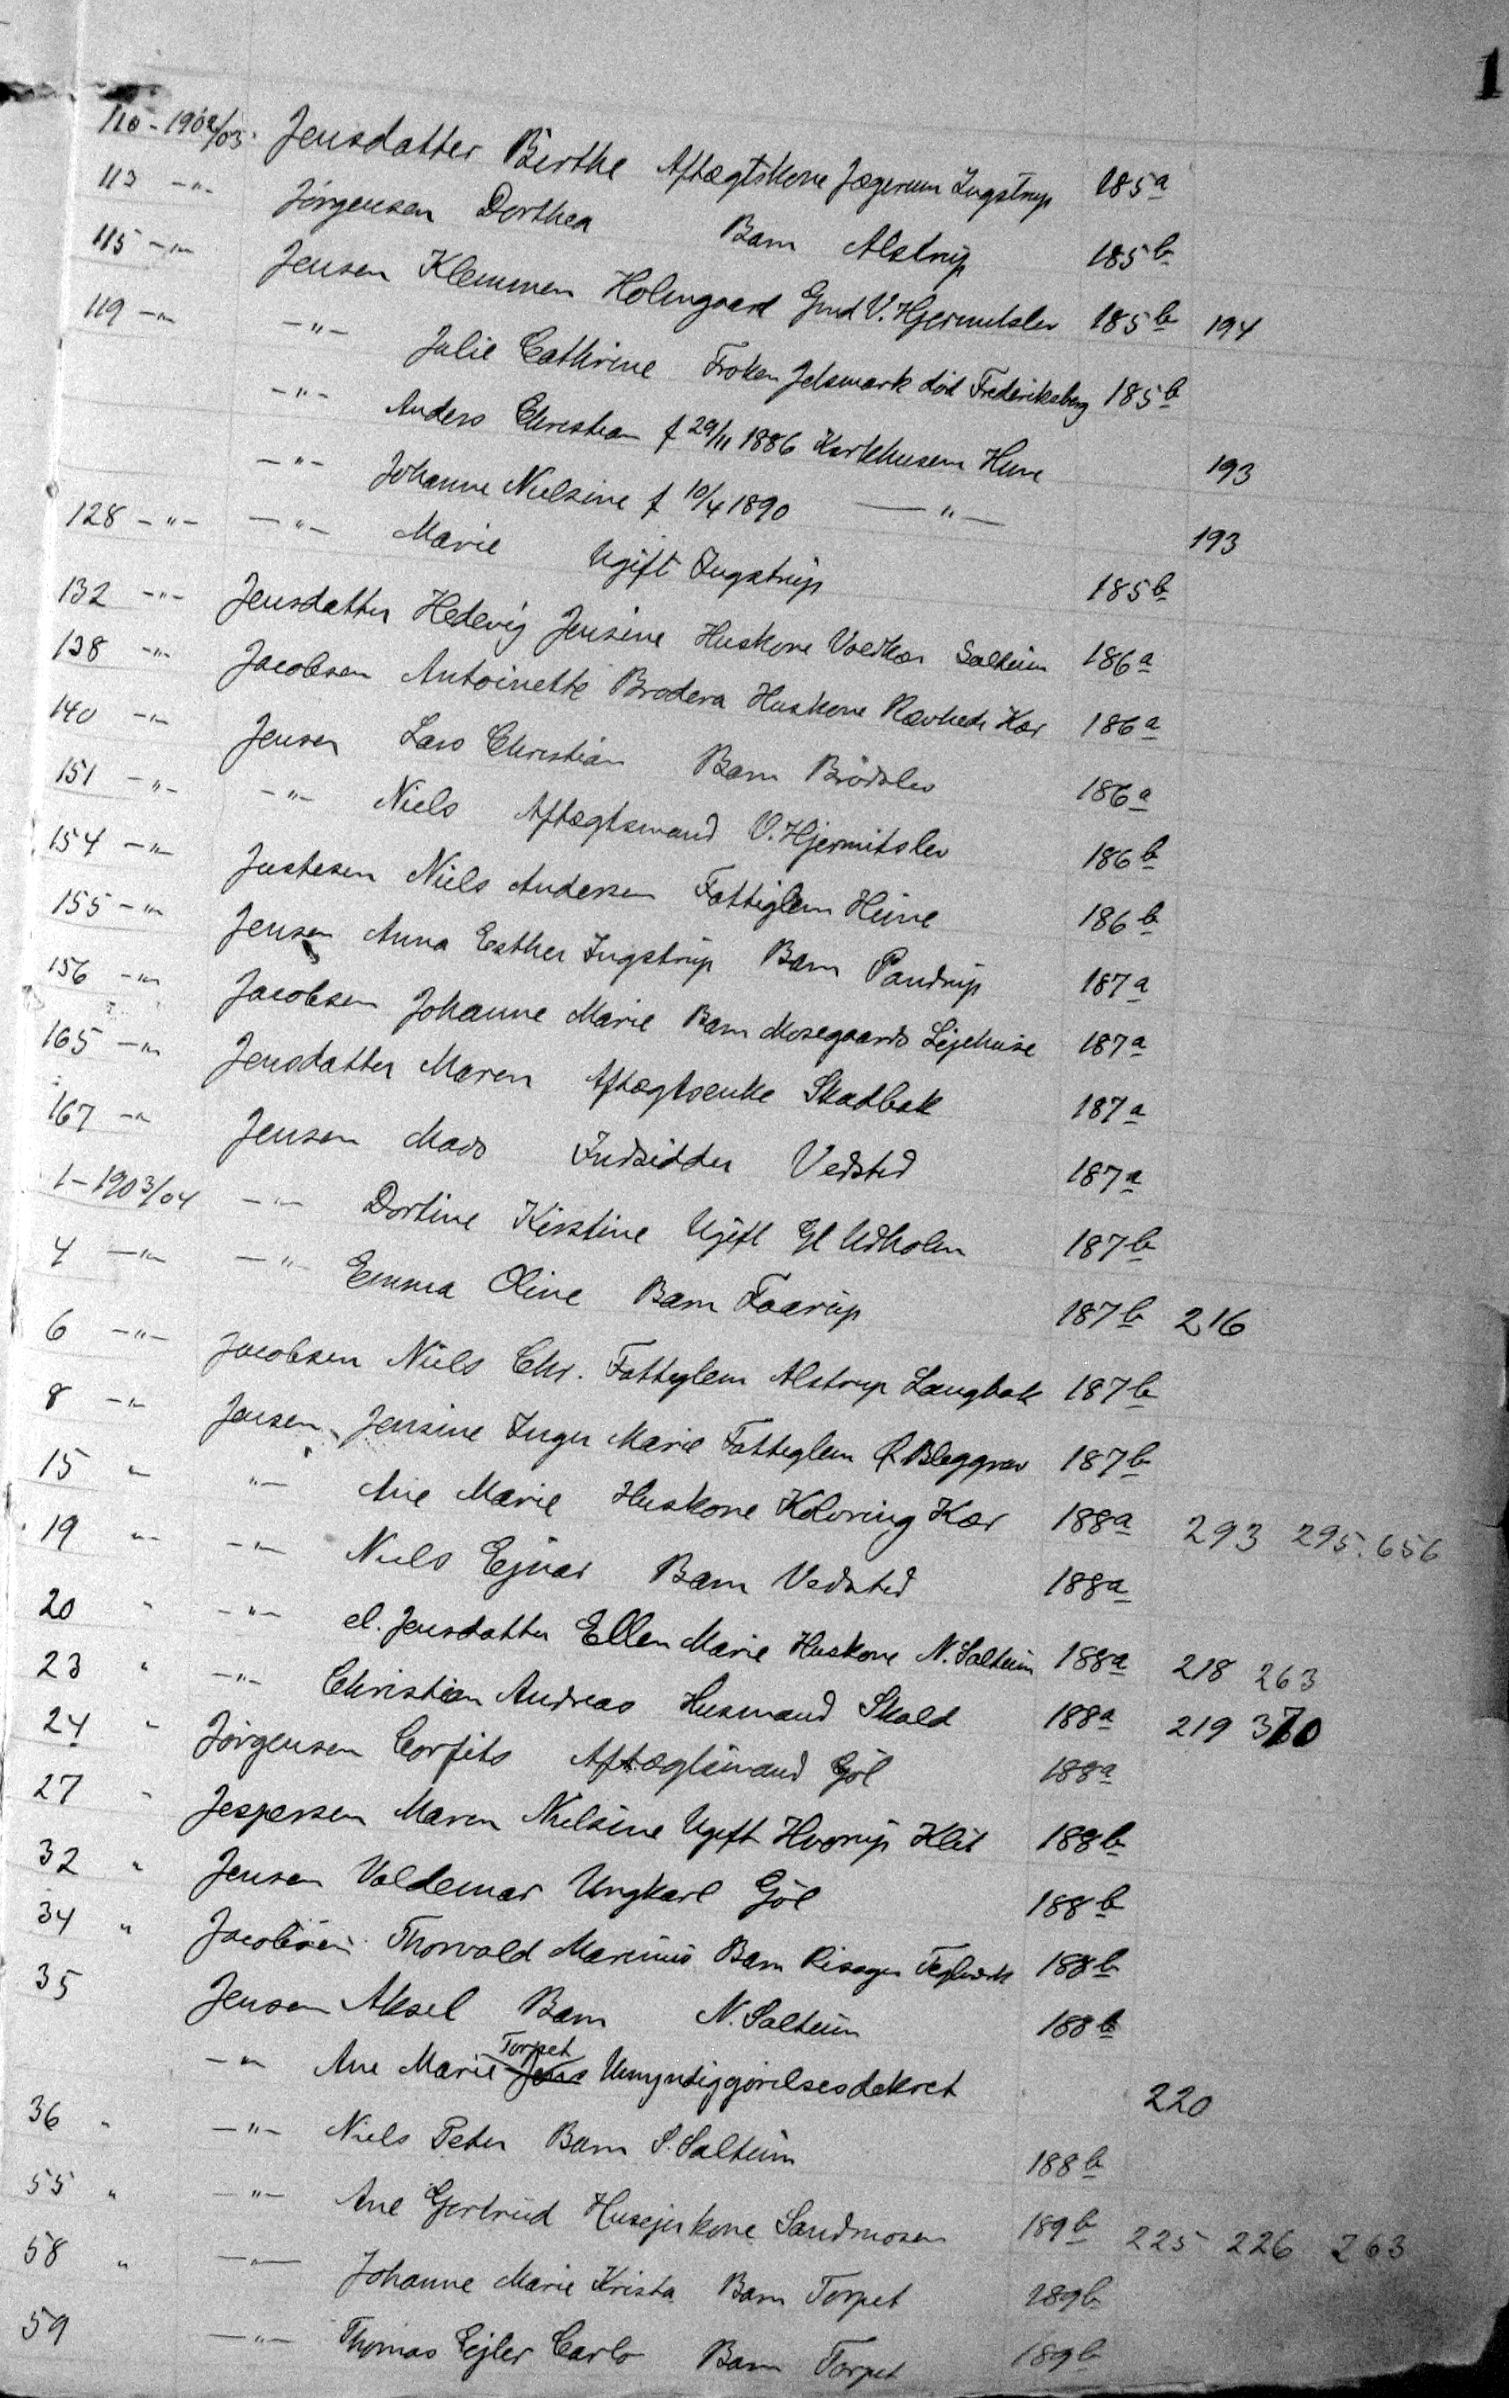 1
110 - 1902/03 Jensdatter Birthe Aftægtskone Jægerum Ingstrup 185a
113 -"- Jörgensen Dorthea Barn Alstrup 185b
115 -"- Jensen Klemmen Holmgaard Gmd V. Hjermitslev 185b 194
119 -"- -"- Julie Cathrine Frøken Jetsmark död Frederiksberg 185b
-"- Anders Christian f 29/11 1886 Hune 193
-"- Johanne Nielsine f 10/4 1890 -"- 193
128 -"- -"- Marie Ugift Ingstrup 185b
132 -"- Jensdatter Hedevig Jensine Huskone Saltum 186a
138 -"- Jacobsen Antoinette Brodera Huskone Kær 186a
140 -"- Jensen Lars Christian Barn Brödslev 186a
151 -"- -"- Niels Aftægtsmand V. Hjermitslev 186b
154 -"- Justesen Niels Andersen Fattiglem Hune 186b
155 -"- Jensen Anna Esther Ingstrup Barn Pandrup 187a
156 -"- Jacobsen Johanne Marie Barn Mosegaards Lejehuse 187a
165 -"- Jensdatter Maren Aftægtsenke Skadbak 187a
167 -"- Jensen Mads Indsidder Vedsted 187a
1 - 1903/04 -"- Dortine Kirstine Ugift Gl Udholm 187b
4 -"- -"- Emma Oline Barn Faarup 187b 216
6 -"- Jacobsen Niels Chr. Fattiglem Alstrup Langbak 187b
8 -"- Jensen Jensine Inger Marie Fattiglem 187b
15 " "- Ane Marie Huskone Kolvring Kær 188a 293 295. 656
19 "- -"- Niels Ejnar Barn Vedsted 188a
20 " -"- el. Jensdatter Ellen Marie Huskone N. Saltum 188a 218 263
23 " -"- Christian Andreas Husmand Skald 188a 219 370
24 " Jörgensen Corfits Aftægtsmand Gjöl 188a
27 " Jespersen Maren Nielsine Ugift Hvorup Klit 188b
32 " Jensen Valdemar Ungkarl Gjöl 188b
34 " Jacobsen Thorvald Marinus Barn Risager Teglværk 188b
35 Jensen Aksel Barn N. Saltum 188b
-"- Ane Marie Torpet Umyndiggjörelsesdekret 220
36 " -"- Niels Peter Barn S. Saltum 188b
55 " -"- Ane Gjertrud Husejerkone Sandmosen 189b 225 226 263
58 " -"- Johanne Marie Krista Barn Torpet 189b
59 -"- Thomas Ejler Carlo Barn Torpet 189b